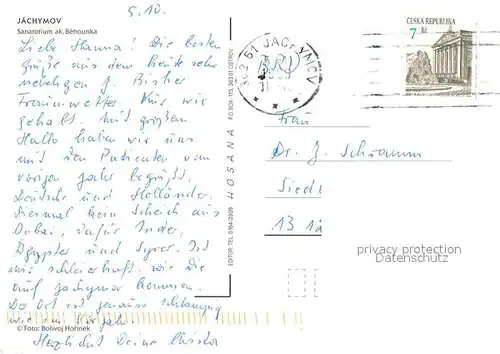 5.10.
JÁCHYMOV
Sanatorium ak. Běhounka
Liebe Hanna! Die besten
Grüße aus dem heute sehr
nebeligen J. Bisher
Traumwetter. Wie wir
gehabt. Mit großem
Hallo haben wir uns
mit den Patienten vom
vorigen Jahr begrüßt,
Deutsche und Holländer.
Diesmal kein Scheich aus
Dubai, dafür Inder,
Ägypter und Syrer. Ist
mir schleierhaft, wie die
auf Jachymov kommen.
Der Ort ist genauso
wie im Vorjahr.
Herzlichst Deine Christa
© Foto: Bolivoj Hořínek
EDITOR: TEL. 0164/2909
HOSANA
P.O. BOX 115, 363 01 OSTROV
362 51 JÁCHYMOV
ČESKÁ REPUBLIKA
7 Kč
Frau
Dr. J. Schramm
Siedl
13 1
privacy protection
Datenschutz